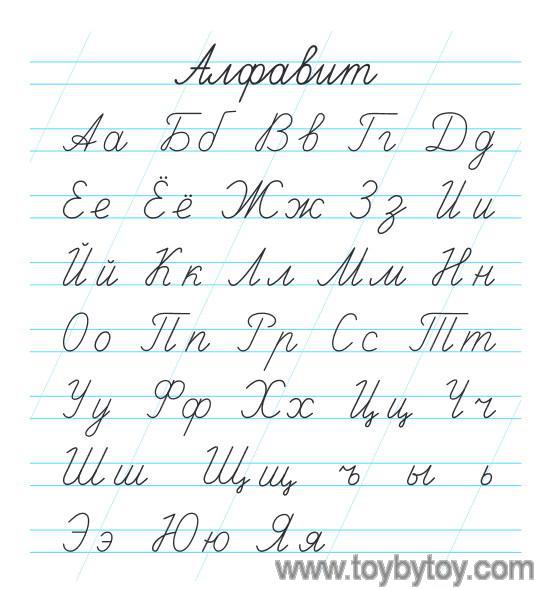 Алфавит
Аа Бб Вв Гг Дд
Ее Ёё Жж Зз Ии
Йй Кк Лл Мм Нн
Оо Пп Рр Сс Тт
Уу Фф Хх Цц Чч
Шш Щщ ъ ы ь
Ээ Юю Яя
www.toybytoy.com